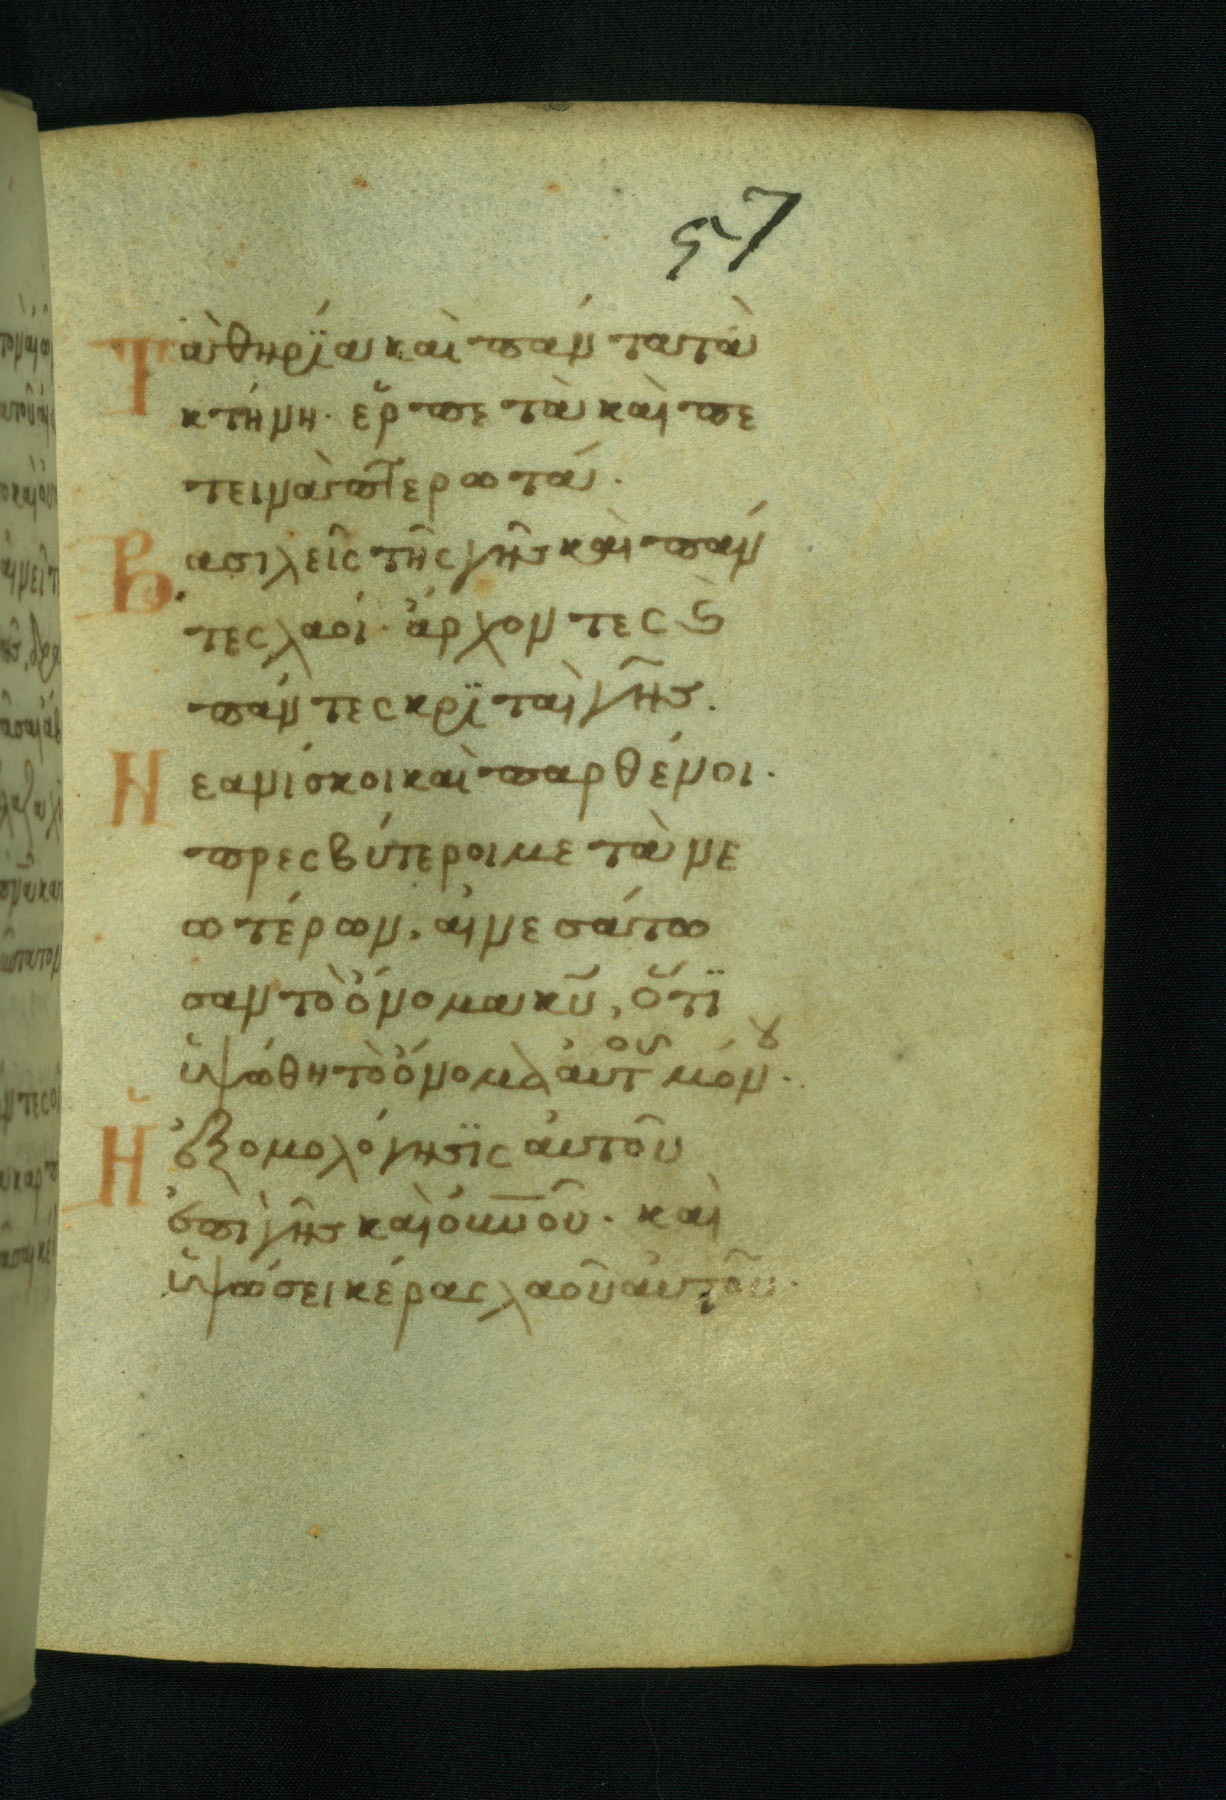 57
Τὰ θηρΐα καὶ πάντα τὰ
κτήνη· ἕρπετὰ καὶ πε
τεινὰ πτερωτά.
Βασιλεῖς τῆς γῆς καὶ πάν
τες λαοί· ἄρχοντες ϗ
πάντες κρϊταὶ γῆς.
Νεανίσκοι καὶ παρθένοι.
πρεσβύτεροι μετὰ νε
ωτέρων, αἰνεσάτω
σαν τὸ ὄνομα κυ̅, ὅτϊ
ὑψώθη τὸ ὄνομα ἀυτοῦ μόνου.
Ἡ ἐξομολόγησϊς ἀυτοῦ
ἐπὶ γῆς καὶ ὀυνοῦ. καὶ
ὑψώσει κέρας λαοῦ ἀυτοῦ.